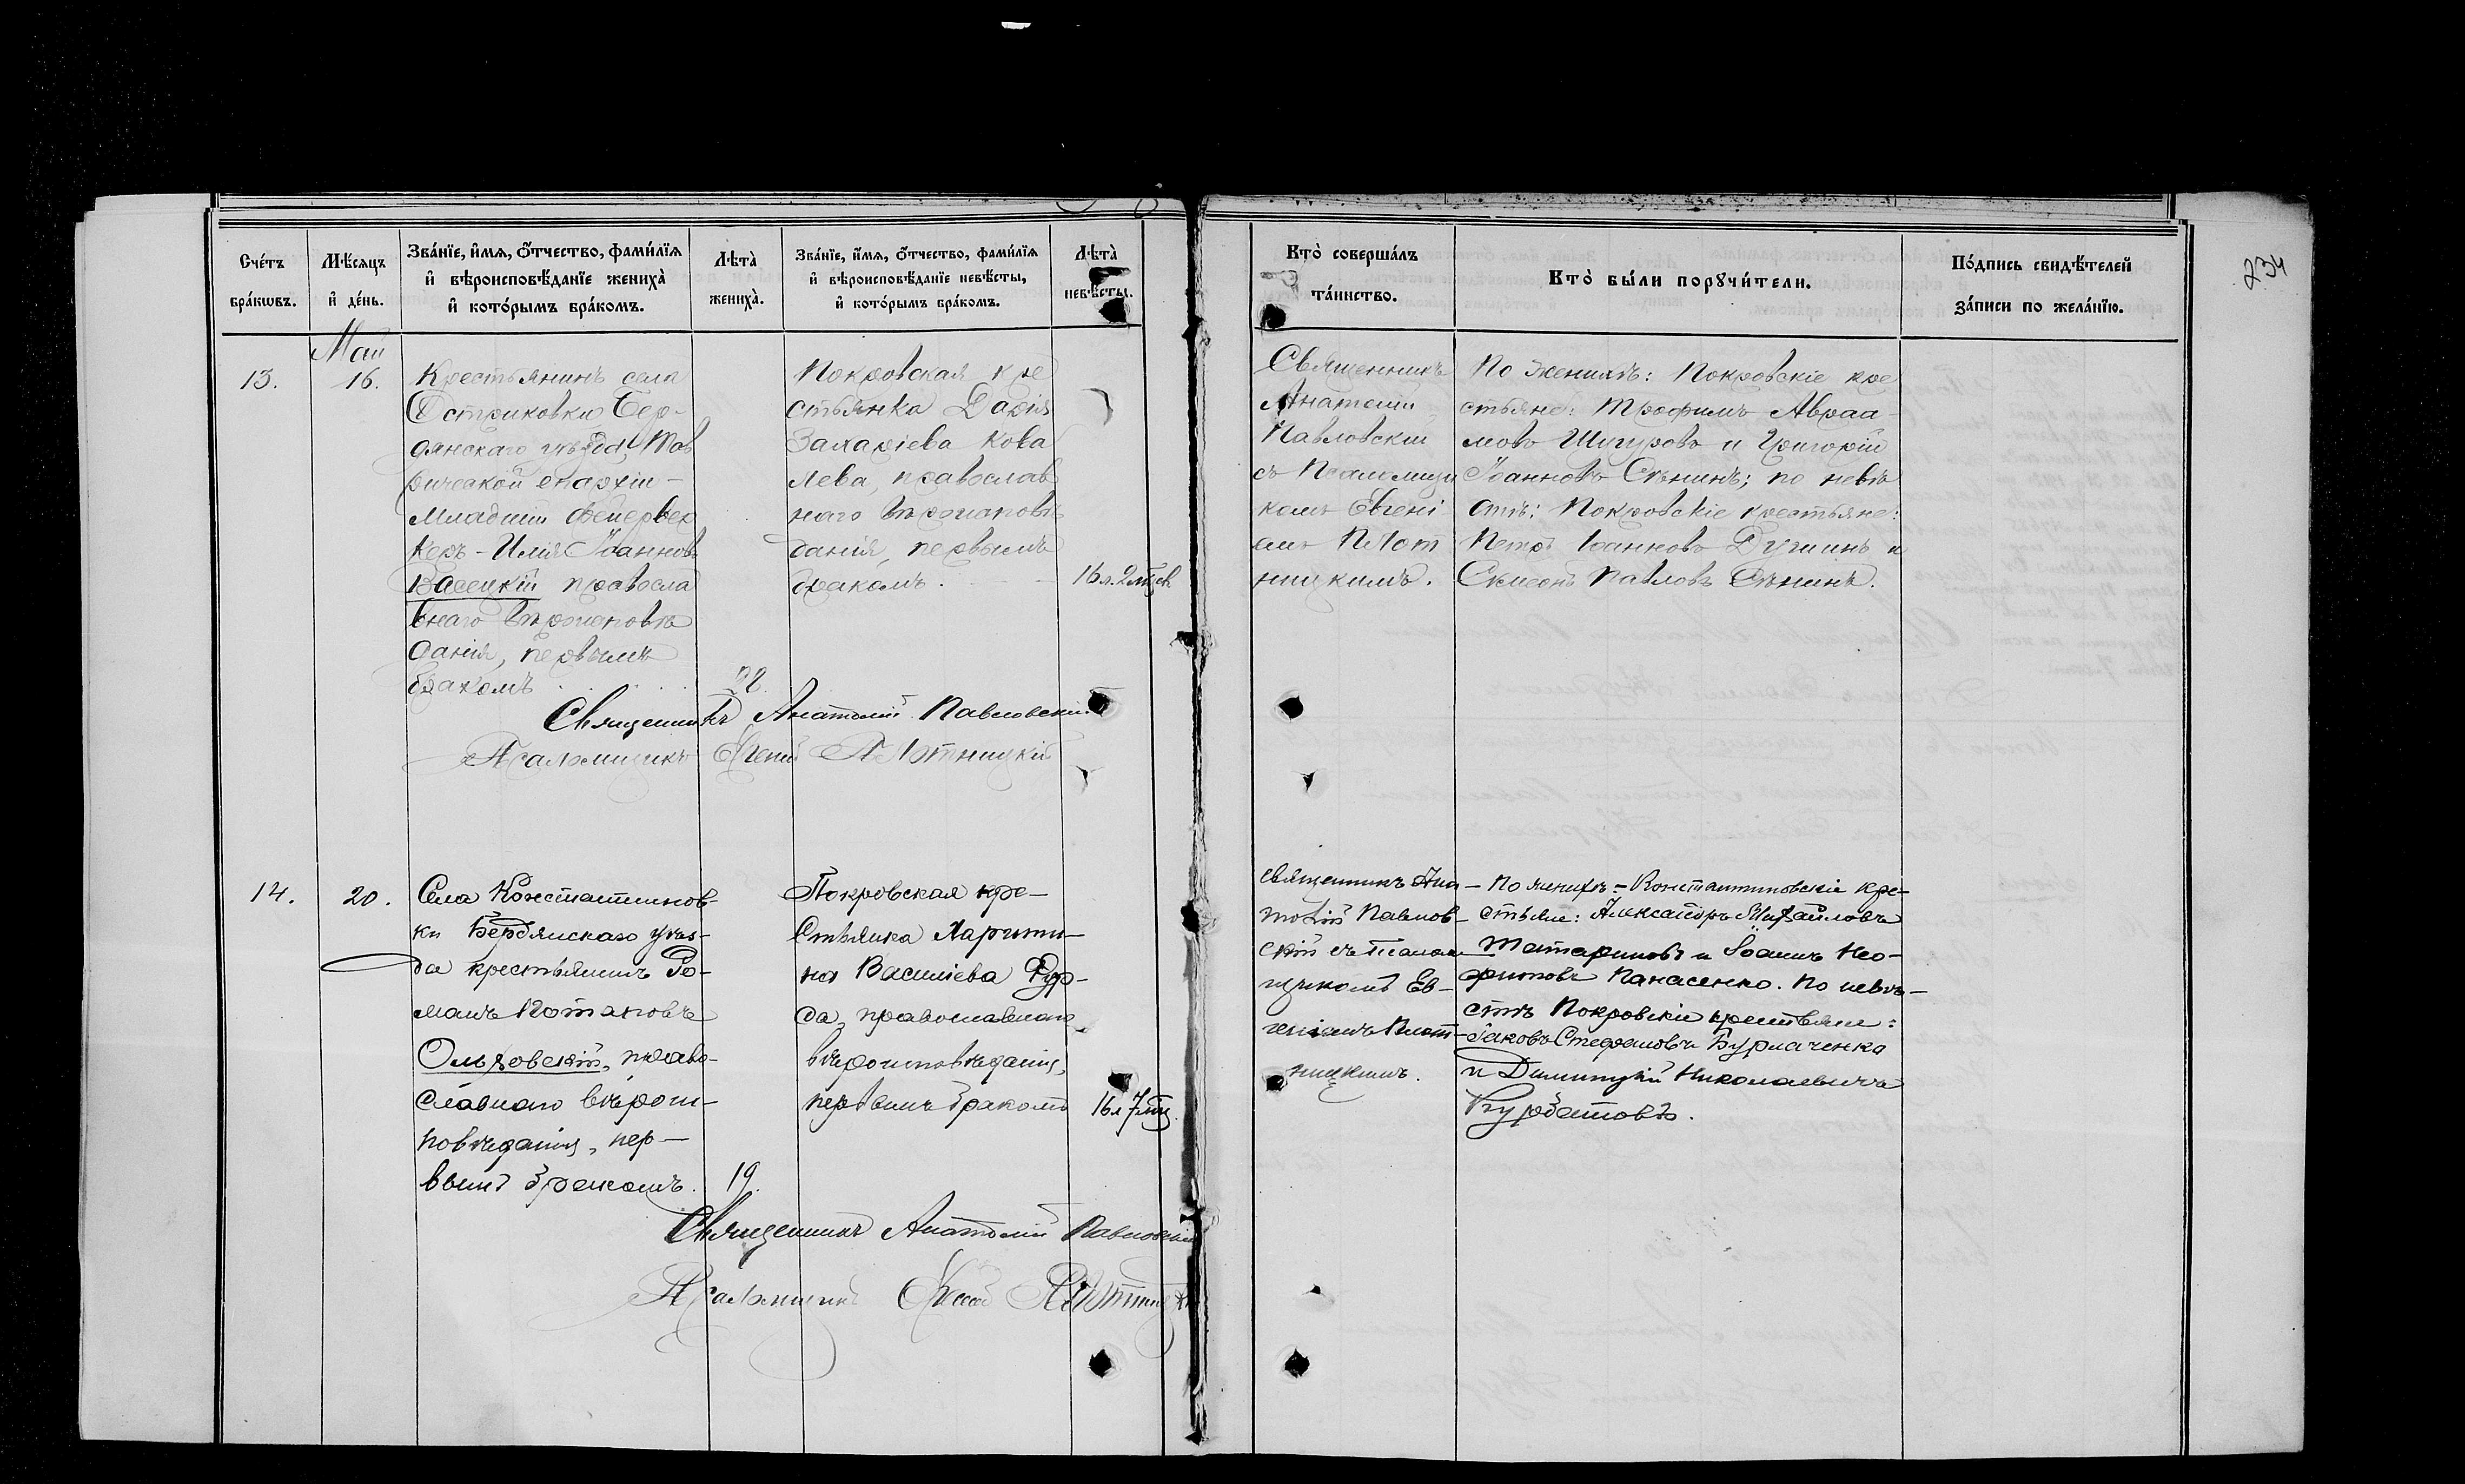 234
Счéтъ
брáкωвъ.
Мѣ́сяцъ
и҆ дéнь.
Звáнїе, и҆́мя, ѻ҆́тчество, фами́лїя
и҆ вѣроисповѣ́данїе женихà
и҆ кото́рымъ брáкомъ.
Лѣтà
женихà.
Звáнїе, и҆́мя, ѻ҆́тчество, фами́лїя
и҆ вѣроисповѣ́данїе невѣ́сты,
и҆ кото́рымъ брáкомъ.
Лѣтà
невѣ́сты.
Ктò совершáлъ
тáинство.
Ктò бы́ли порꙋчи́тели.
Пóдпись свидѣ́телей
зáписи по желáнїю.
Май
13.
16.
Крестьянинъ села
Остриковки Бер-
дянскаго уѣзда, Тав
рической епархіи -
младшій фейервер
керъ - Илія Іоаннов
Васецкій правосла
внаго вѣроисповѣ
данія, первымъ
бракомъ
22.
Покровская кре
стьянка Дарія
Захаріева Кова
лева, православ
наго вѣроисповѣ
данія, первымъ
бракомъ.
16 л. 2 мѣсяц.
Священникъ
Анатолій
Павловскій
съ Псаломщи
комъ Евгені
емъ Плот
ницкимъ.
По женихѣ: Покровскіе кре
стьяне: Трофимъ Авраа
мовъ Шугуровъ и Григорій
Іоанновъ Сѣнинъ; по невѣ
стѣ: Покровскіе крестьяне:
Петръ Іоанновъ и
Симеонъ Павловъ Сѣнинъ.
Священникъ Анатолій Павловскій
Псаломщикъ Евгеній Плотницкій
14.
20.
Села Константинов-
ки Бердянскаго уѣз-
да крестьянинъ Ро-
манъ Потаповъ
Ольховскій, право-
славнаго вѣроис-
повѣданія, пер-
вымъ бракомъ.
19.
Покровская кре-
стьянка Харити-
на Василіева
православнаго
вѣроисповѣданія,
первымъ бракомъ
16 л 7 мѣц.
Священникъ Ана-
толій Павлов-
скій съ Псалом
щикомъ Ев-
геніемъ Плот-
ницкимъ.
По женихѣ - Константиновскіе кре-
стьяне: Александръ Михайловъ
Татариновъ и Іоаннъ Нео-
фитовъ Панасенко. По невѣ-
стѣ Покровскіе крестьяне:
Іаковъ Стефановъ Бурлаченко
и Димитрій Николаевичъ
Курбатовъ.
Священникъ Анатолій Павловскій
Псаломщикъ Евгеній Плотницкій